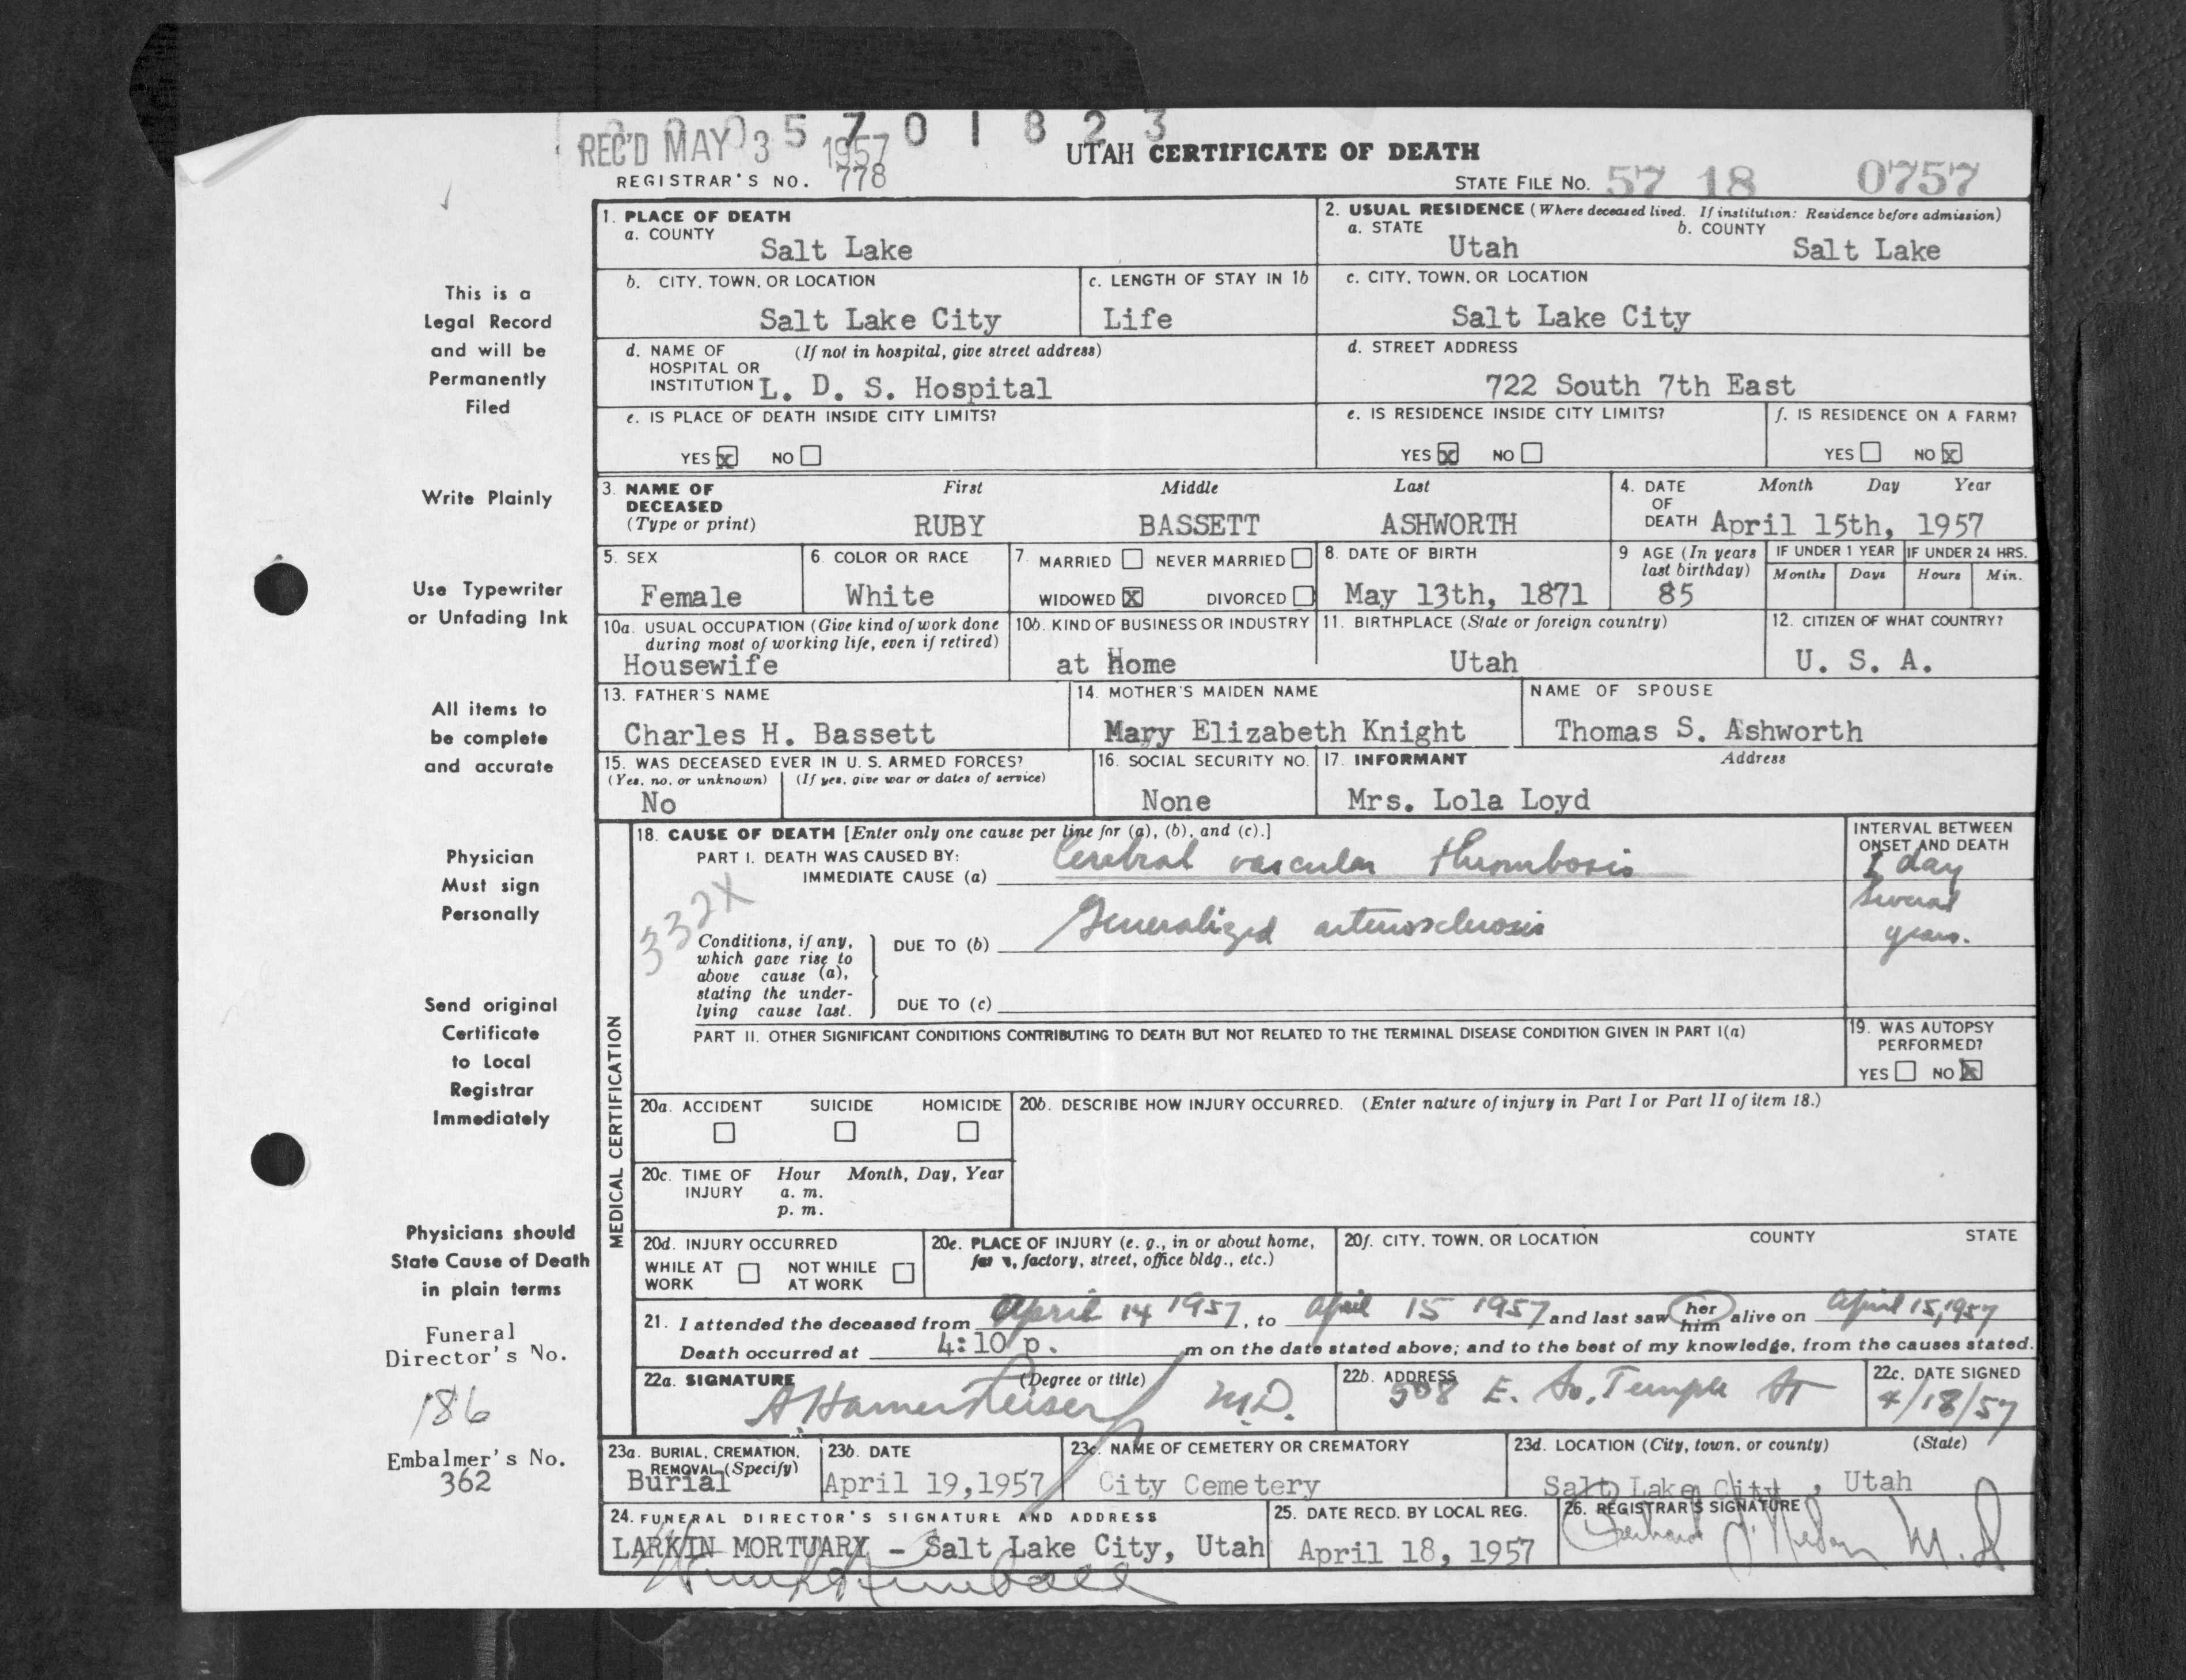 0 0 0 5 7 0 1 8 2 3
REC'D MAY 3 1957
UTAH CERTIFICATE OF DEATH
REGISTRAR'S NO. 778
STATE FILE NO. 57 18 0757
1. PLACE OF DEATH
a. COUNTY
Salt Lake
2. USUAL RESIDENCE (Where deceased lived. If institution: Residence before admission)
a. STATE b. COUNTY
Utah Salt Lake
b. CITY, TOWN, OR LOCATION
Salt Lake City
c. LENGTH OF STAY IN 1b
Life
c. CITY, TOWN, OR LOCATION
Salt Lake City
d. NAME OF (If not in hospital, give street address)
HOSPITAL OR
INSTITUTION L. D. S. Hospital
d. STREET ADDRESS
722 South 7th East
e. IS PLACE OF DEATH INSIDE CITY LIMITS?
YES X NO
e. IS RESIDENCE INSIDE CITY LIMITS?
YES X NO
f. IS RESIDENCE ON A FARM?
YES NO X
3. NAME OF DECEASED (Type or print)
First Middle Last
RUBY BASSETT ASHWORTH
4. DATE OF DEATH
Month Day Year
April 15th, 1957
5. SEX
Female
6. COLOR OR RACE
White
7. MARRIED NEVER MARRIED
WIDOWED X DIVORCED
8. DATE OF BIRTH
May 13th, 1871
9 AGE (In years last birthday)
85
IF UNDER 1 YEAR
Months Days
IF UNDER 24 HRS.
Hours Min.
10a. USUAL OCCUPATION (Give kind of work done
during most of working life, even if retired)
Housewife
10b. KIND OF BUSINESS OR INDUSTRY
at Home
11. BIRTHPLACE (State or foreign country)
Utah
12. CITIZEN OF WHAT COUNTRY?
U. S. A.
13. FATHER'S NAME
Charles H. Bassett
14. MOTHER'S MAIDEN NAME
Mary Elizabeth Knight
NAME OF SPOUSE
Thomas S. Ashworth
15. WAS DECEASED EVER IN U. S. ARMED FORCES?
(Yes, no, or unknown) (If yes, give war or dates of service)
No
16. SOCIAL SECURITY NO.
None
17. INFORMANT Address
Mrs. Lola Loyd
MEDICAL CERTIFICATION
18. CAUSE OF DEATH [Enter only one cause per line for (a), (b), and (c).]
PART I. DEATH WAS CAUSED BY:
IMMEDIATE CAUSE (a) Cerebral vascular thrombosis
INTERVAL BETWEEN
ONSET AND DEATH
1 day
332X
Conditions, if any,
which gave rise to
above cause (a),
stating the under-
lying cause last.
DUE TO (b) Generalized arteriosclerosis
Several
years.
DUE TO (c)
PART II. OTHER SIGNIFICANT CONDITIONS CONTRIBUTING TO DEATH BUT NOT RELATED TO THE TERMINAL DISEASE CONDITION GIVEN IN PART I(a)
19. WAS AUTOPSY
PERFORMED?
YES NO X
20a. ACCIDENT SUICIDE HOMICIDE
20b. DESCRIBE HOW INJURY OCCURRED. (Enter nature of injury in Part I or Part II of item 18.)
20c. TIME OF INJURY
Hour Month, Day, Year
a. m.
p. m.
20d. INJURY OCCURRED
WHILE AT WORK NOT WHILE AT WORK
20e. PLACE OF INJURY (e. g., in or about home,
factory, street, office bldg., etc.)
20f. CITY, TOWN, OR LOCATION COUNTY STATE
21. I attended the deceased from April 14 1957, to April 15 1957 and last saw her him alive on April 15, 1957
Death occurred at 4:10 p. m on the date stated above; and to the best of my knowledge, from the causes stated.
22a. SIGNATURE (Degree or title)
M.D.
22b. ADDRESS
508 E. So. Temple St
22c. DATE SIGNED
4/18/57
23a. BURIAL, CREMATION,
REMOVAL (Specify)
Burial
23b. DATE
April 19, 1957
23c. NAME OF CEMETERY OR CREMATORY
City Cemetery
23d. LOCATION (City, town, or county) (State)
Salt Lake City, Utah
24. FUNERAL DIRECTOR'S SIGNATURE AND ADDRESS
LARKIN MORTUARY - Salt Lake City, Utah
25. DATE RECD. BY LOCAL REG.
April 18, 1957
26. REGISTRAR'S SIGNATURE
M.D.
This is a
Legal Record
and will be
Permanently
Filed
Write Plainly
Use Typewriter
or Unfading Ink
All items to
be complete
and accurate
Physician
Must sign
Personally
Send original
Certificate
to Local
Registrar
Immediately
Physicians should
State Cause of Death
in plain terms
Funeral
Director's No.
186
Embalmer's No.
362